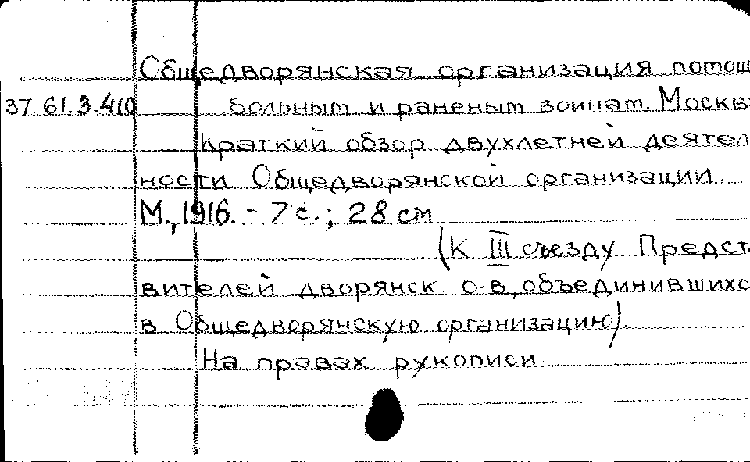 Общедворянская организация помощ
37 61.3.410 больным и раненым воинам. Москв
Краткий обзор двухлетней деятел
ности Общедворянской организации.
М., 1916. - 7 с.; 28 см
(К III съезду Предст
вителей дворянск о-в, объединившихс
в Общедворянскую организацию)
На правах рукописи